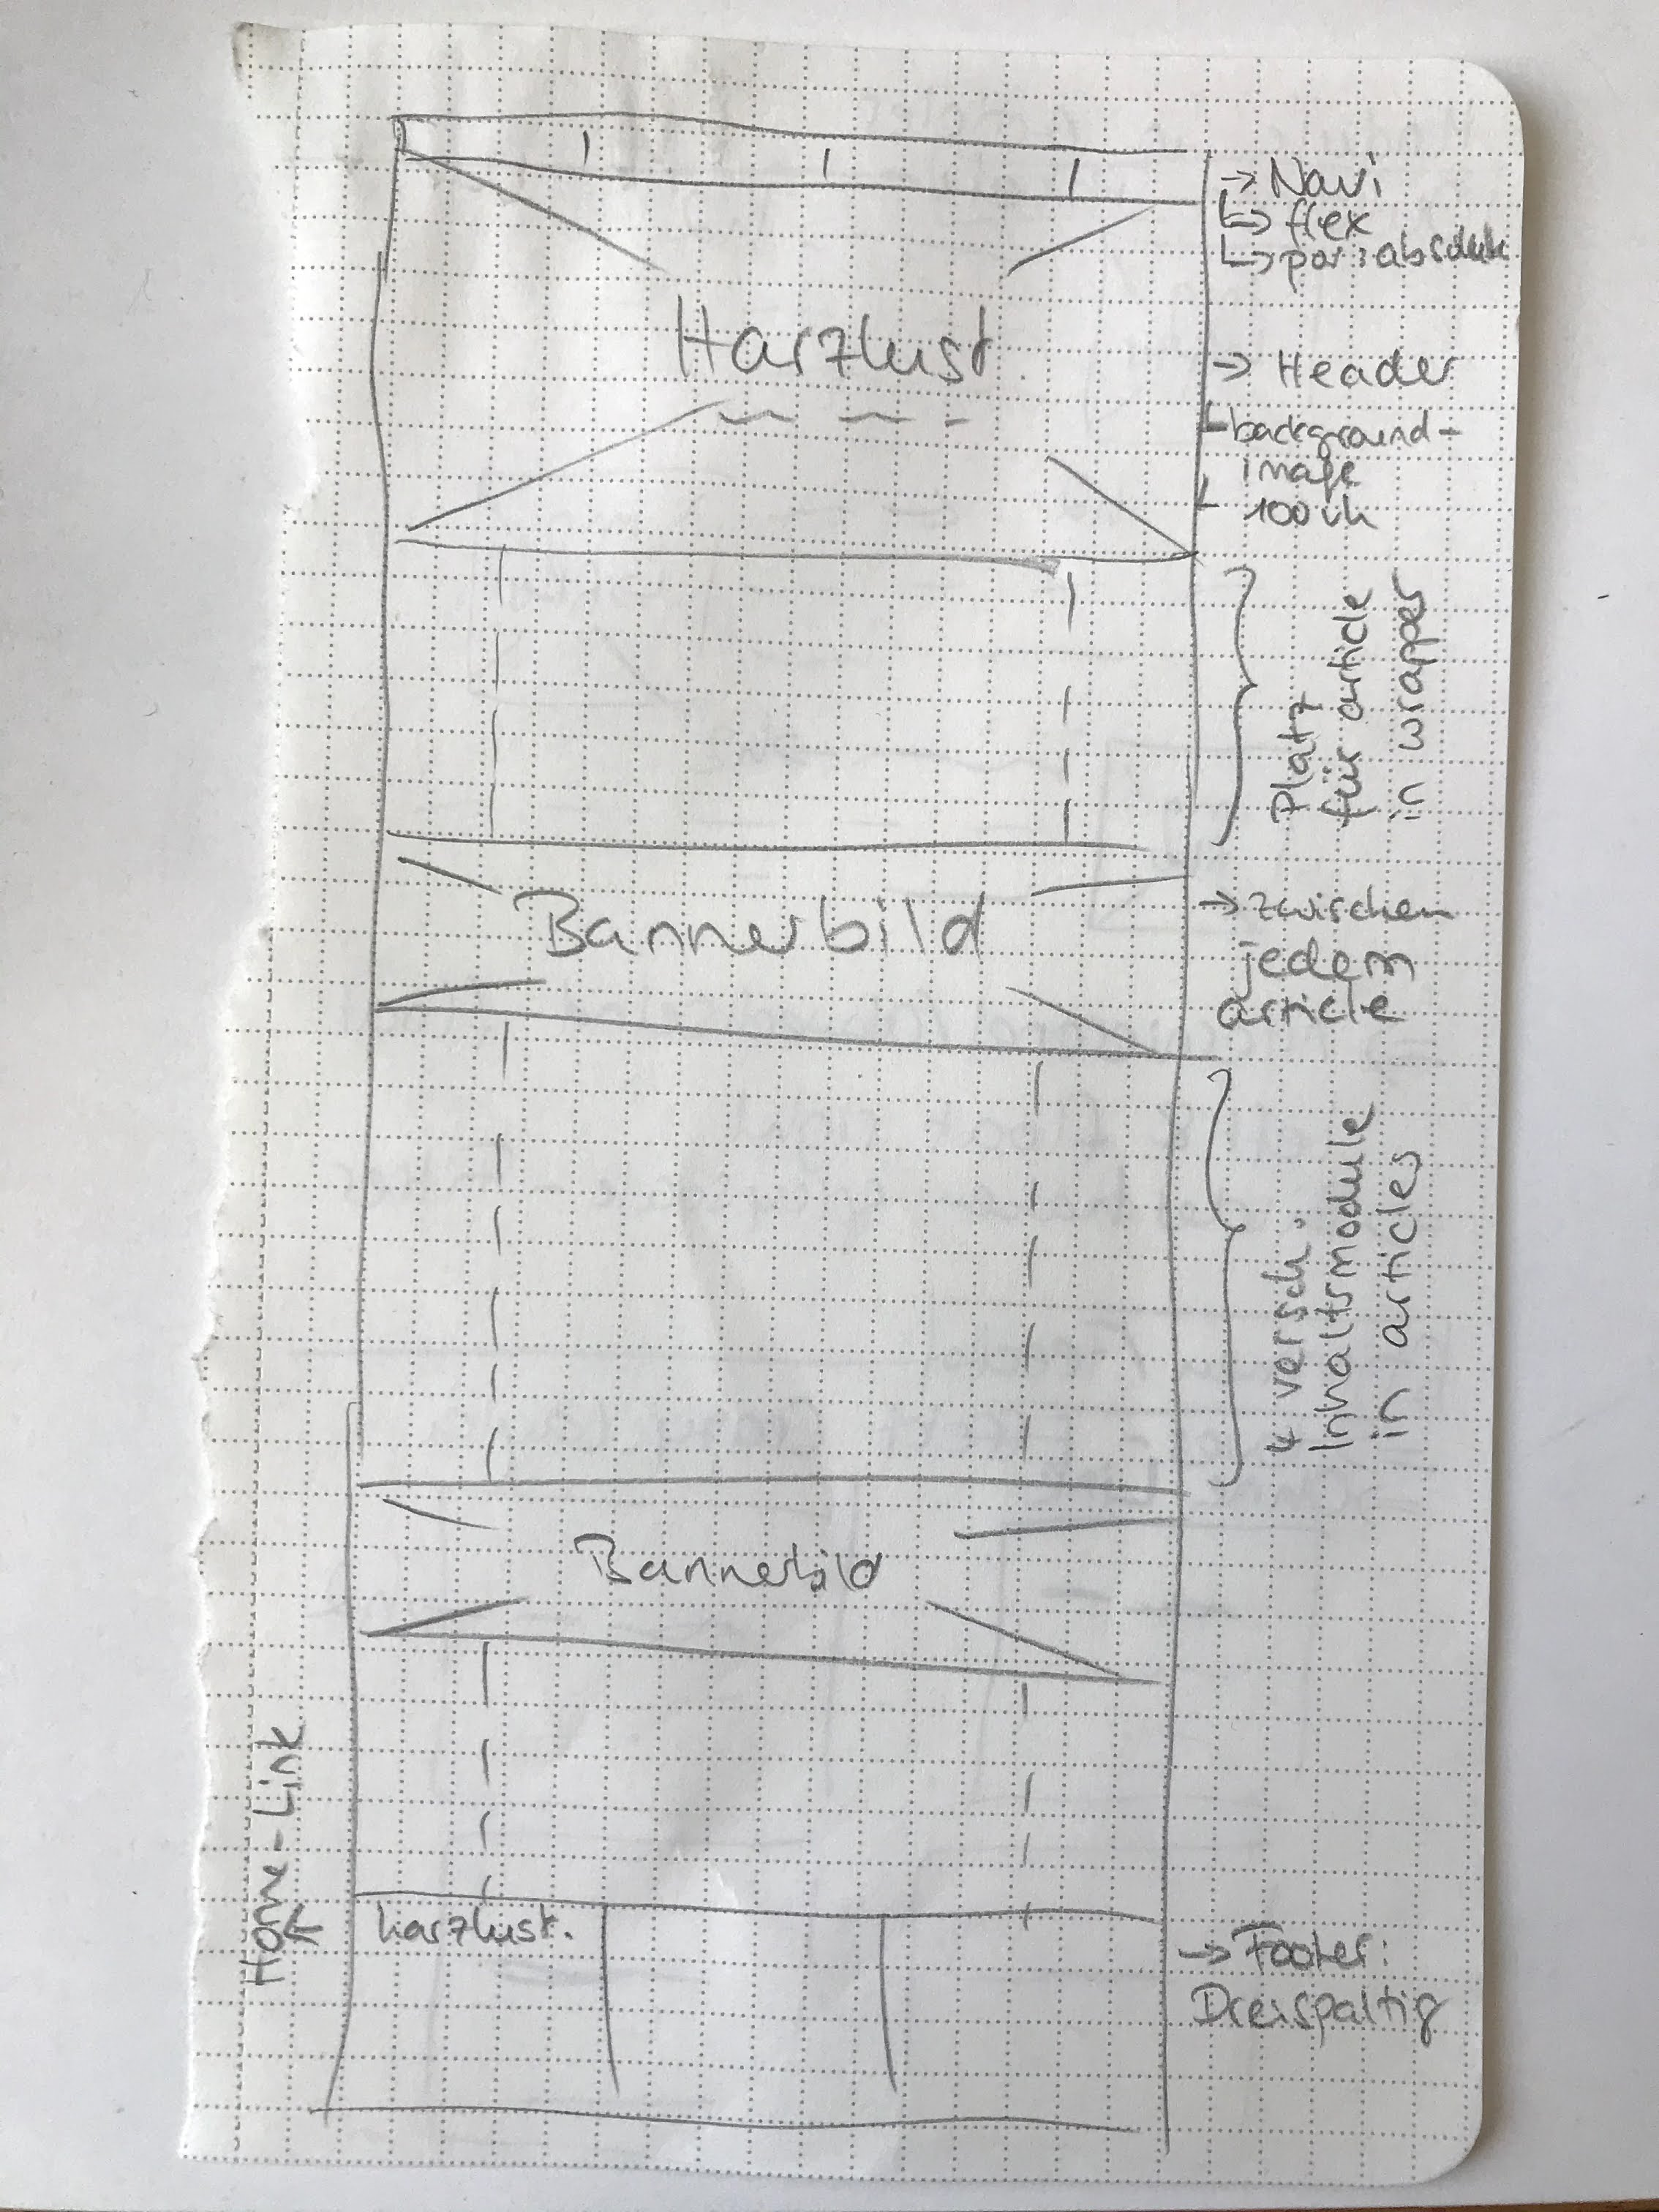 → Navi
↳ flex
↳ pos: absolute
Harzlust
→ Header
background-
image
100vh
Platz
für article
in wrapper
Bannerbild
→ zwischen
jedem
article
↳ versch.
Inhaltsmodule
in articles
Bannerbild
Home-Link
harzlust.
→ Footer:
Dreispaltig